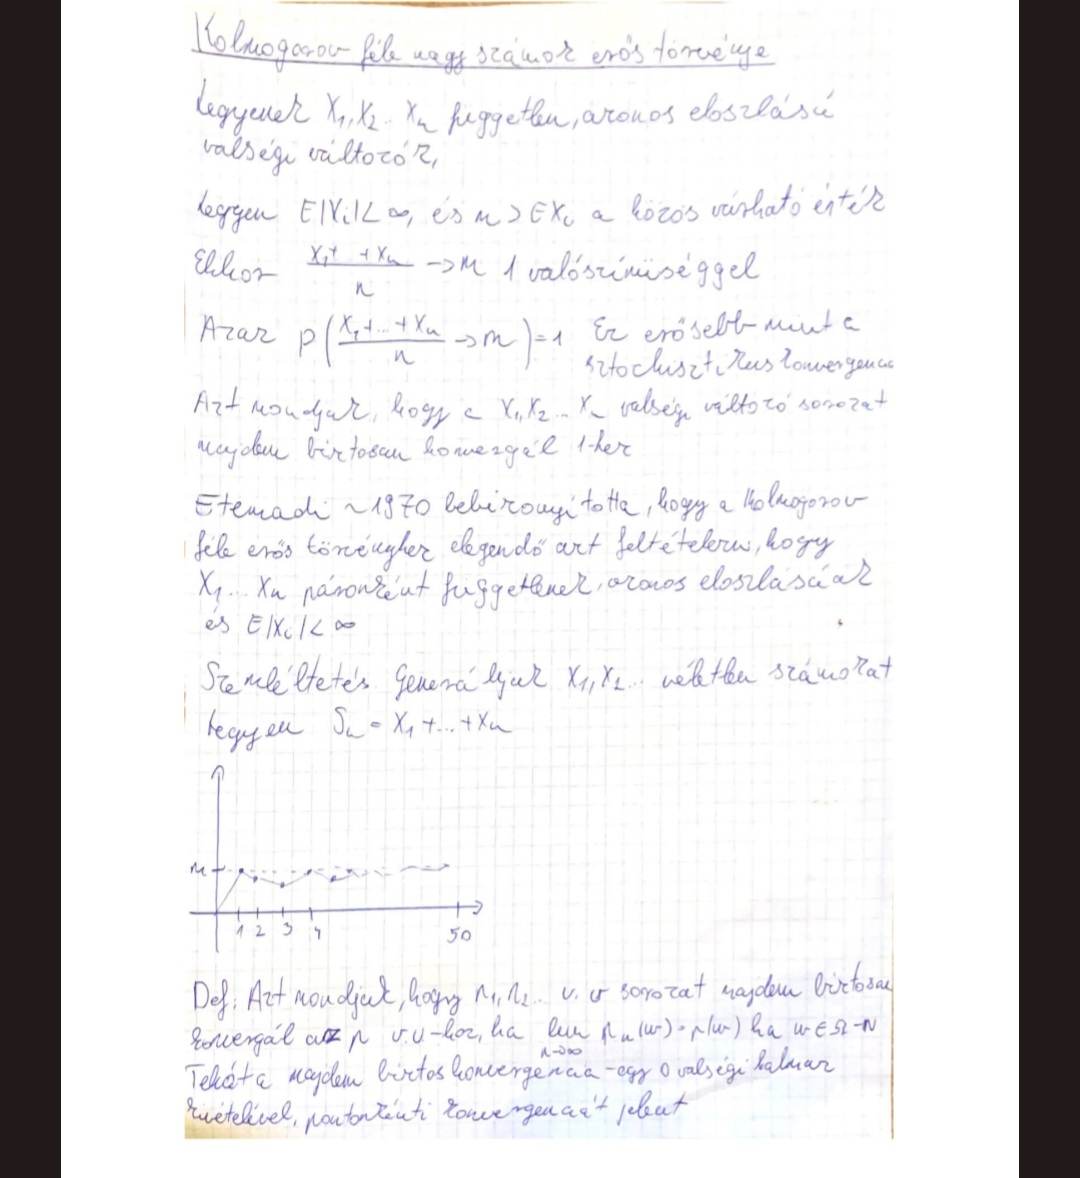 Kolmogorov féle nagy számok erős törvénye
Legyenek X₁, X₂ .. Xₙ független, azonos eloszlású
valségi változók,
Legyen E|Xᵢ| < ∞, és m > EXᵢ a közös várható érték
Ekkor (X₁+ +Xₙ)/n → m 1 valószínűséggel
Azaz P((X₁+...+Xₙ)/n → m) = 1 Ez erősebb mint a
sztochasztikus konvergencia
Azt mondjuk, hogy a X₁, X₂ ... Xₙ valségi változó sorozat
majdem biztosan konvergál 1-hez
Etemadi ~1970 bebizonyította, hogy a Kolmogorov
féle erős törvényhez elegendő azt feltételezni, hogy
X₁... Xₙ páronként függetlenek, azonos eloszlásúak
és E|Xᵢ| < ∞
Szemléltetés Generáljuk X₁, X₂... véletlen számokat
Legyen Sₙ = X₁+...+Xₙ
m
1 2 3 4 50
Def: Azt mondjuk, hogy η₁, η₂.. v. v sorozat majdem biztosan
konvergál az η v.v-hoz, ha lim n→∞ ηₙ(ω) = η(ω) ha ω ∈ Ω - N
Tehát a majdem biztos konvergencia - egy 0 valségi halmaz
kivételével, pontonkénti konvergenciát jelent